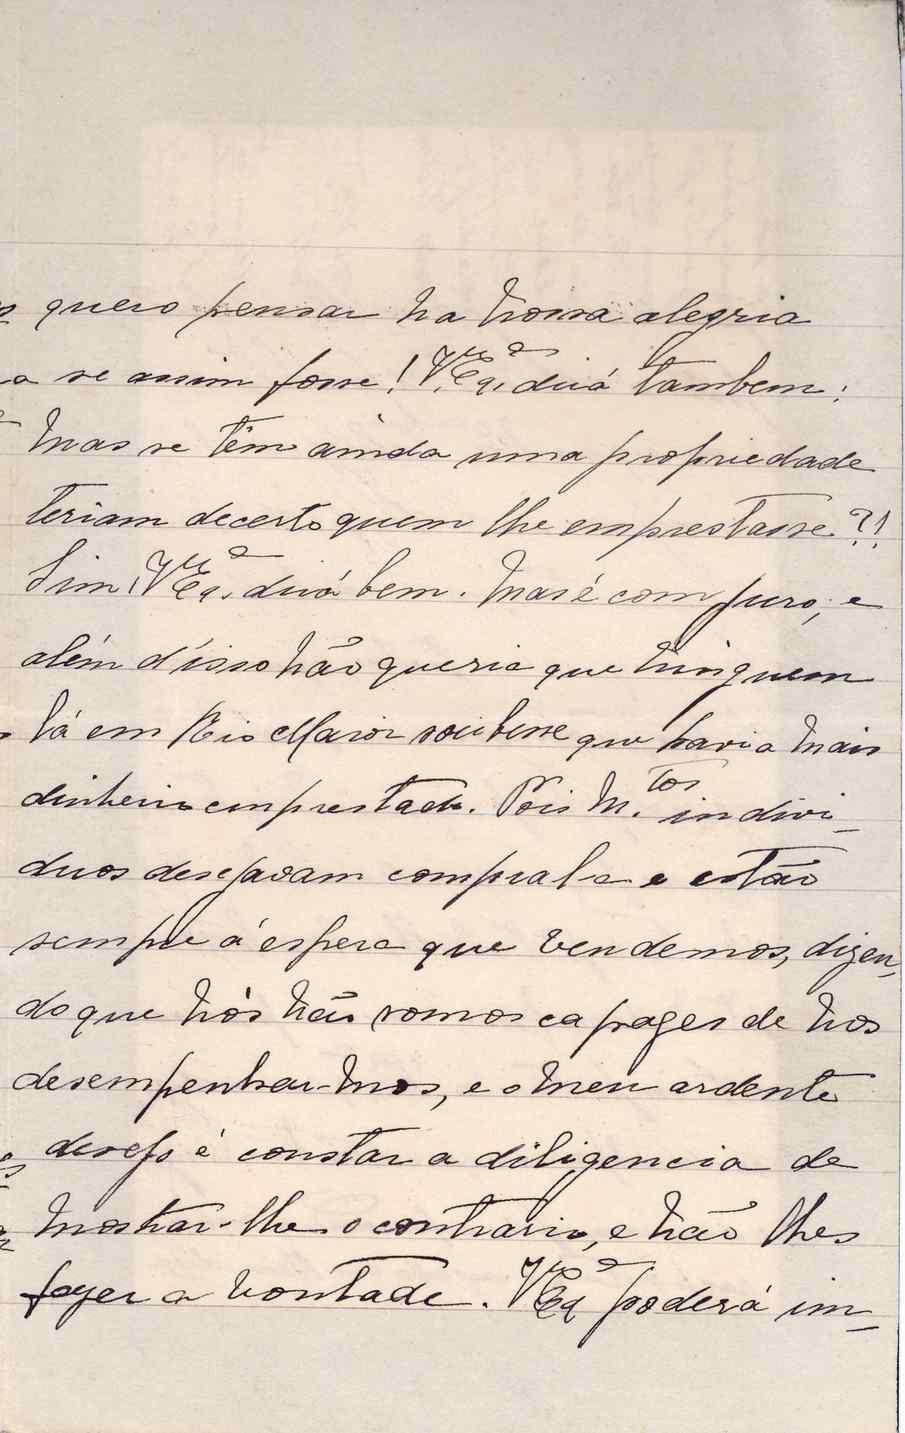 quero pensar na nossa alegria
se assim fosse! V. Ex.ª dirá tambem:
Mas se têm ainda uma propriedade
teriam decerto quem lhe emprestasse?!
Sim, V. Ex.ª dirá bem. Mas é com juro, e
além d'isso não queria que ninguem
lá em Rio Maior soubesse que havia mais
dinheiro emprestado. Pois m.tos indivi-
duos desejavam compral-a e estão
sempre á espera que vendemos, dizen-
do que nós não somos capazes de nos
desempenhar-mos, e o meu ardente
desejo é constar a diligencia de
mostrar-lhe o contrario, e não lhes
fazer a vontade. V. Ex.ª poderá im-